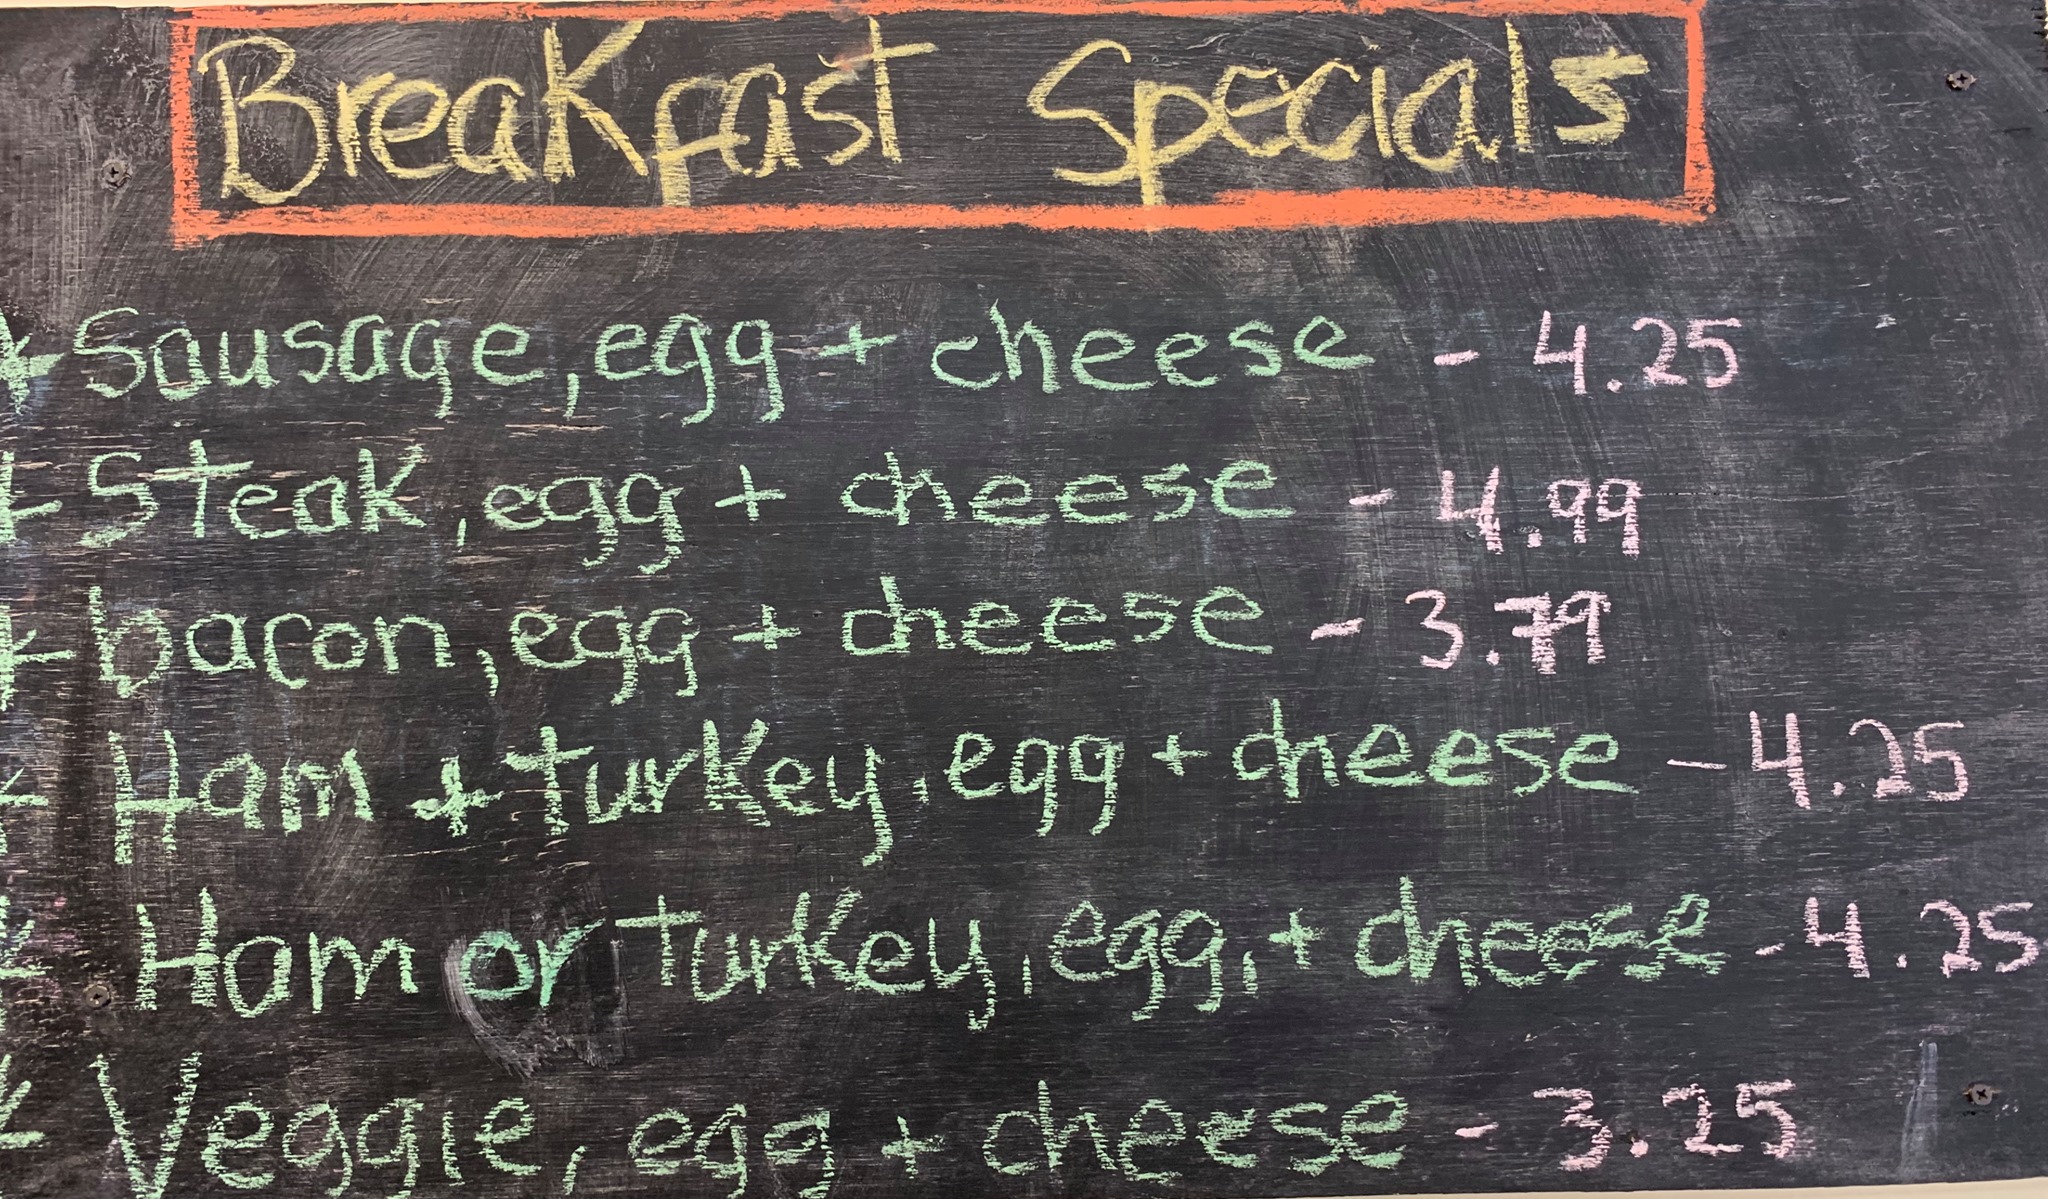 Breakfast Specials
* Sausage, egg + cheese - 4.25
* Steak, egg + cheese - 4.99
* bacon, egg + cheese - 3.79
* Ham + turkey, egg + cheese - 4.25
* Ham or turkey, egg, + cheese - 4.25
* Veggie, egg + cheese - 3.25